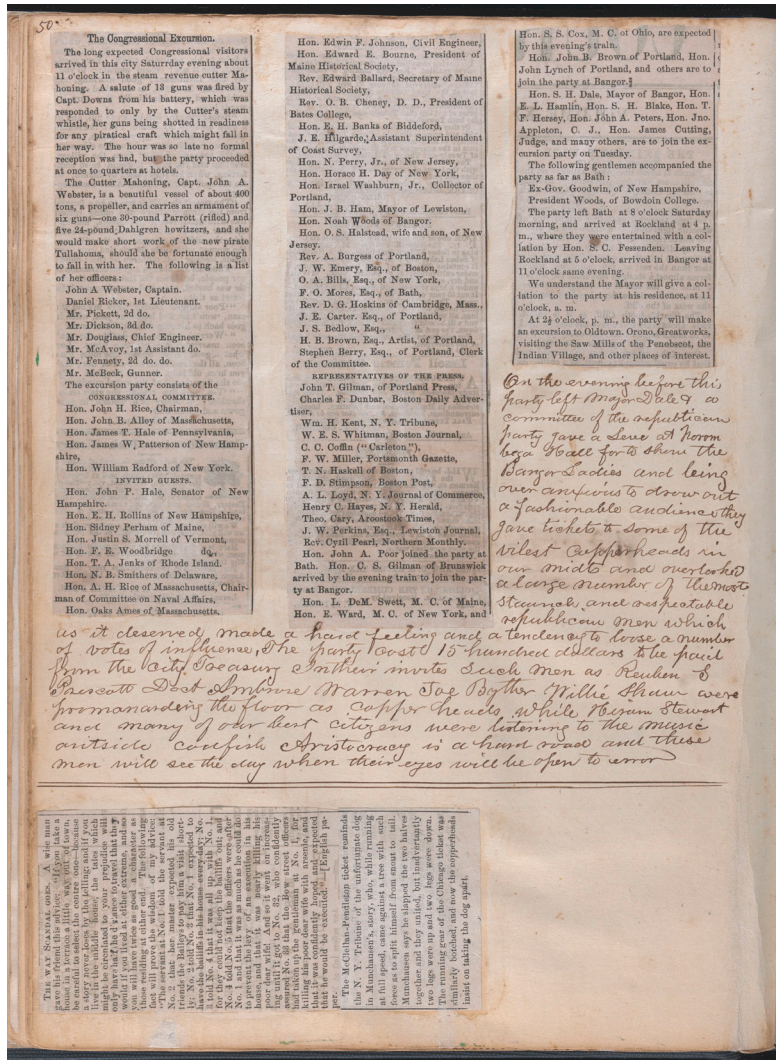 50
The Congressional Excursion.
The long expected Congressional visitors
arrived in this city Saturrday evening about
11 o'clock in the steam revenue cutter Ma-
honing. A salute of 13 guns was fired by
Capt. Downs from his battery, which was
responded to only by the Cutter's steam
whistle, her guns being shotted in readiness
for any piratical craft which might fall in
her way. The hour was so late no formal
reception was had, but the party proceeded
at once to quarters at hotels.
The Cutter Mahoning, Capt. John A.
Webster, is a beautiful vessel of about 400
tons, a propeller, and carries an armament of
six guns—one 30-pound Parrott (rifled) and
five 24-pound Dahlgren howitzers, and she
would make short work of the new pirate
Tullahoma, should she be fortunate enough
to fall in with her. The following is a list
of her officers:
John A Webster, Captain.
Daniel Ricker, 1st Lieutenant.
Mr. Pickett, 2d do.
Mr. Dickson, 3d do.
Mr. Douglass, Chief Engineer.
Mr. McAvoy, 1st Assistant do.
Mr. Fennety, 2d do. do.
Mr. McBeck, Gunner.
The excursion party consists of the
CONGRESSIONAL COMMITTEE.
Hon. John H. Rice, Chairman,
Hon. John B. Alley of Massachusetts,
Hon. James T. Hale of Pennsylvania,
Hon. James W. Patterson of New Hamp-
shire,
Hon. William Radford of New York.
INVITED GUESTS.
Hon. John P. Hale, Senator of New
Hampshire.
Hon. E. H. Rollins of New Hampshire,
Hon. Sidney Perham of Maine,
Hon. Justin S. Morrell of Vermont,
Hon. F. E. Woodbridge do.
Hon. T. A. Jenks of Rhode Island.
Hon. N. B. Smithers of Delaware,
Hon. A. H. Rice of Massachusetts, Chair-
man of Committee on Naval Affairs,
Hon. Oaks Ames of Massachusetts.
Hon. Edwin F. Johnson, Civil Engineer,
Hon. Edward E. Bourne, President of
Maine Historical Society,
Rev. Edward Ballard, Secretary of Maine
Historical Society,
Rev. O. B. Cheney, D. D., President of
Bates College,
Hon. E. H. Banks of Biddeford,
J. E. Hilgarde, Assistant Superintendent
of Coast Survey,
Hon. N. Perry, Jr., of New Jersey,
Hon. Horace H. Day of New York,
Hon. Israel Washburn, Jr., Collector of
Portland,
Hon. J. B. Ham, Mayor of Lewiston,
Hon. Noah Woods of Bangor.
Hon. O. S. Halstead, wife and son, of New
Jersey.
Rev. A. Burgess of Portland,
J. W. Emery, Esq., of Boston,
O. A. Bills, Esq., of New York,
F. O. Mores, Esq., of Bath,
Rev. D. G. Hoskins of Cambridge, Mass.,
J. E. Carter. Esq., of Portland,
J. S. Bedlow, Esq., "
H. B. Brown, Esq., Artist, of Portland,
Stephen Berry, Esq., of Portland, Clerk
of the Committee.
REPRESENTATIVES OF THE PRESS.
John T. Gilman, of Portland Press,
Charles F. Dunbar, Boston Daily Adver-
tiser,
Wm. H. Kent, N. Y. Tribune,
W. E. S. Whitman, Boston Journal,
C. C. Coffin ("Carleton"),
F. W. Miller, Portsmouth Gazette,
T. N. Haskell of Boston,
F. D. Stimpson, Boston Post,
A. L. Loyd, N. Y. Journal of Commerce,
Henry C. Hayes, N. Y. Herald,
Theo. Cary, Aroostook Times,
J. W. Perkins, Esq., Lewiston Journal,
Rev. Cyril Pearl, Northern Monthly.
Hon. John A. Poor joined the party at
Bath. Hon. C. S. Gilman of Brunswick
arrived by the evening train to join the par-
ty at Bangor.
Hon. L. DeM. Swett, M. C. of Maine,
Hon. E. Ward, M. C. of New York, and
Hon. S. S. Cox, M. C. of Ohio, are expected
by this evening's train.
Hon. John B. Brown of Portland, Hon.
John Lynch of Portland, and others are to
join the party at Bangor.
Hon. S. H. Dale, Mayor of Bangor, Hon.
E. L. Hamlin, Hon. S. H. Blake, Hon. T.
F. Hersey, Hon. John A. Peters, Hon. Jno.
Appleton, C. J., Hon. James Cutting,
Judge, and many others, are to join the ex-
cursion party on Tuesday.
The following gentlemen accompanied the
party as far as Bath:
Ex-Gov. Goodwin, of New Hampshire,
President Woods, of Bowdoin College.
The party left Bath at 8 o'clock Saturday
morning, and arrived at Rockland at 4 p.
m., where they were entertained with a col-
lation by Hon. S. C. Fessenden. Leaving
Rockland at 5 o'clock, arrived in Bangor at
11 o'clock same evening.
We understand the Mayor will give a col-
lation to the party at his residence, at 11
o'clock, a. m.
At 2½ o'clock, p. m., the party will make
an excursion to Oldtown. Orono, Greatworks,
visiting the Saw Mills of the Penobscot, the
Indian Village, and other places of interest.
On the evening before this
party left Major Dale & a
committee of the republican
party gave a Leve at Norom
bega Hall for to show the
Bangor Ladies and being
over anxious to drow out
a fashionable audience they
gave tickets to some of the
vilest copperheads in
our midts and overlooked
a large number of the most
staunch and respectable
republican men which
us it deserved made a hard feeling and a tendency to loose a number
of votes of influence, The party cost 15 hundred dollars to be paid
from the City Treasury In their invites Such men as Reuben S
Prescott Doct Ambrose Warren Joe Byther Willie Shaw were
promanarding the floor as copper heads while Hiram Stewart
and many of our best citizens were listening to the music
outside codfish Aristocracy is a hard road and these
men will see the day when their eyes will be open to error
THE WAY SCANDAL GOES. A wise man
gave his friend this advice: "If you take a
house in a terrace a little way out of town,
be careful to select the centre one—because
a story never loses by the telling; and if you
live in the middle house, the tales which
might be circulated to your prejudice will
only have half the distance to travel that they
would if you lived at either extreme, and so
you will have twice as good a character as
those residing at either end. The following
fact will prove the wisdom of my advice:
"The servant at No. 1 told the servant at
No. 2 that her master expected his old
friends the Baileys to pay him a visit short-
ly; No. 2 told No. 3 that No. 1 expected to
have the bailiffs in his house every day; No.
3 told No. 4 that it was all up with No. 1,
for they could not keep the bailiffs out; and
No. 4 told No. 5 that the officers were after
No. 1 and that it was as much as he could do
to prevent the levy of an execution in his
house, and that it was nearly killing his
poor dear wife! And so it went on increas-
ing until it got to No. 32, who confidently
assured No. 33 that the Bow street officers
had taken up the gentleman at No. 1, for
killing his poor dear wife with arsenic, and
that it was confidently hoped and expected
that he would be executed."—[English pa-
per.
The McClellan-Pendleton ticket reminds
the N. Y. Tribune of the unfortunate dog
in Munchausen's story, who, while running
at full speed, came against a tree with such
force as to split himself from snout to tail.
Munchausen says he slapped the two halves
together and they united, but inadvertently
two legs were up and two legs were down.
The running gear of the Chicago ticket was
similarly botched, and now the copperheads
insist on taking the dog apart.